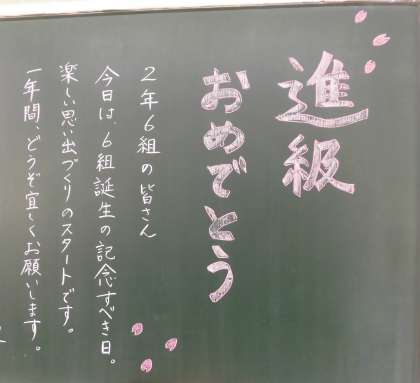 進級
おめでとう
2年6組の皆さん
今日は、6組誕生の記念すべき日。
楽しい思い出づくりのスタートです。
一年間、どうぞ宜しくお願いします。